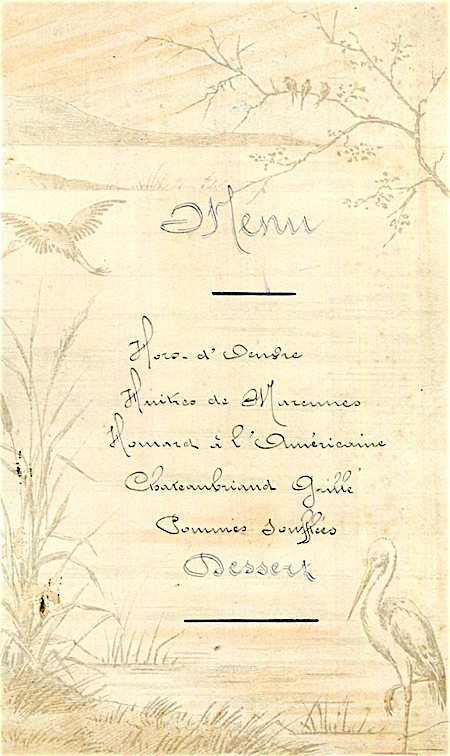 Menu
Hors-d'Oeuvre
Huîtres de Marennes
Homard à l'Américaine
Chateaubriand Grillé
Pommes soufflées
Dessert